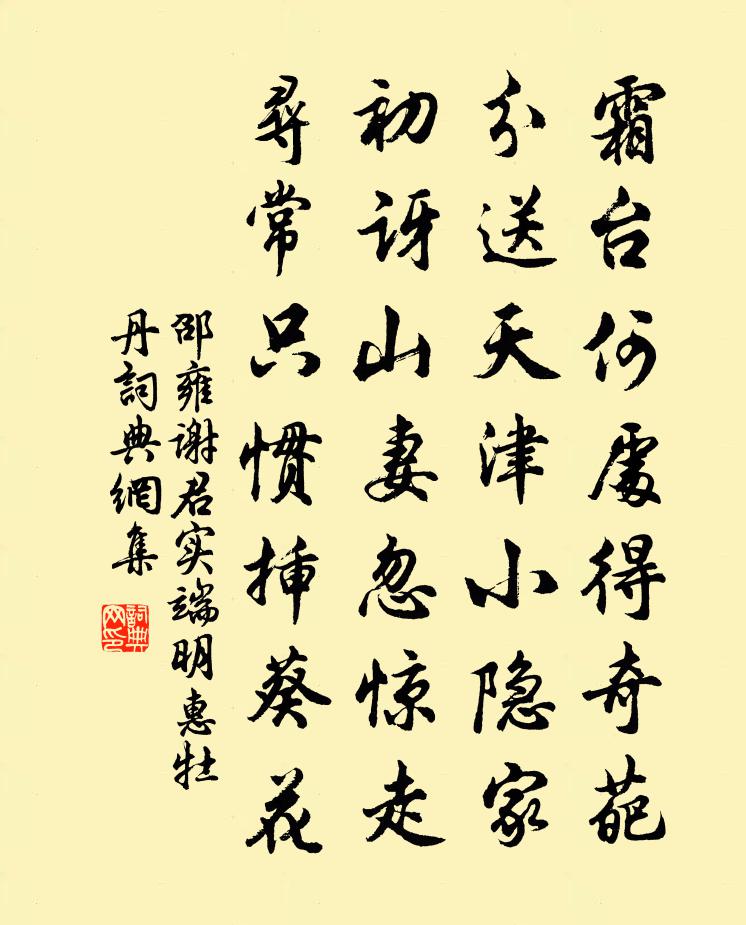 霜台何處得奇葩
分送天津小隐家
初讶山妻忽惊走
尋常只惯插葵花
邵雍谢君实端明惠牡
丹詞典網集
詞典
网印